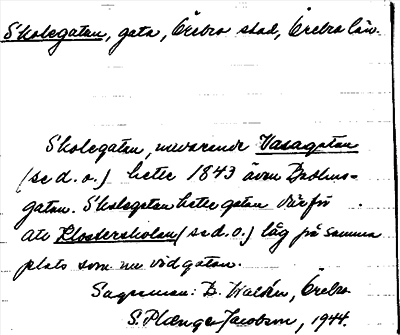 Skolegatan, gata, Örebro stad, Örebro län.
Skolegatan, nuvarende Vasagatan
(se d. o.) hette 1843 även Badhus-
gatan. Skolegatan hette gatan därför
att Klosterskolan (se d. o.) låg på samma
plats som nu vid gatan.
Sagesman: B. Waldén, Örebro
S. Plænge Jacobson, 1944.